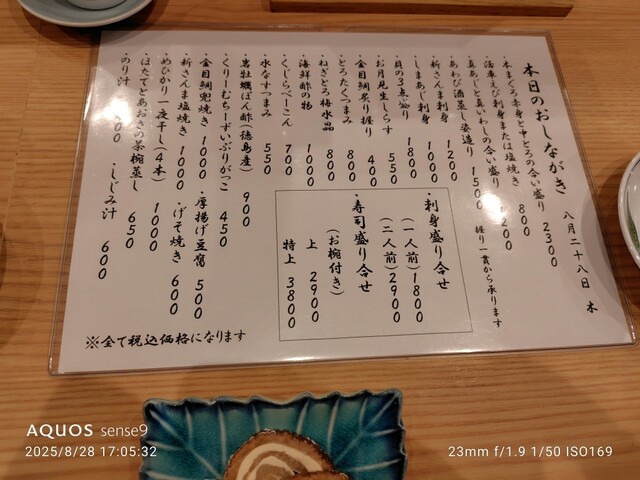 本日のおしながき
八月二十八日 木
・本まぐろ赤身と中とろの合い盛り 2300
・活車えび刺身または塩焼き 800
・真あじと真いわしの合い盛り 1200
握り一貫から承ります
・あわび酒蒸し姿造り 1500
・新さんま刺身 1200
・しまあじ刺身 1000
・貝の3点盛り 1800
・お月見生しらす 550
・金目鯛炙り握り 400
・とろたくつまみ 800
・ねぎとろ梅水晶 800
・海鮮酢の物 1000
・くじらべーこん 700
・水なすつまみ 550
・岩牡蠣ぽん酢(徳島産) 900
・くりーむちーずいぶりがっこ 450
・金目鯛兜焼き 1000
・厚揚げ豆腐 500
・新さんま塩焼き 1000
・げそ焼き 600
・めひかり一夜干し(4本) 1000
・ほたてとあおさの茶椀蒸し 650
・のり汁
・しじみ汁 600
・刺身盛り合せ
(一人前) 1800
(二人前) 2900
・寿司盛り合せ
(お椀付き)
上 2900
特上 3800
※全て税込価格になります
AQUOS sense9
2025/8/28 17:05:32
23mm f/1.9 1/50 ISO169